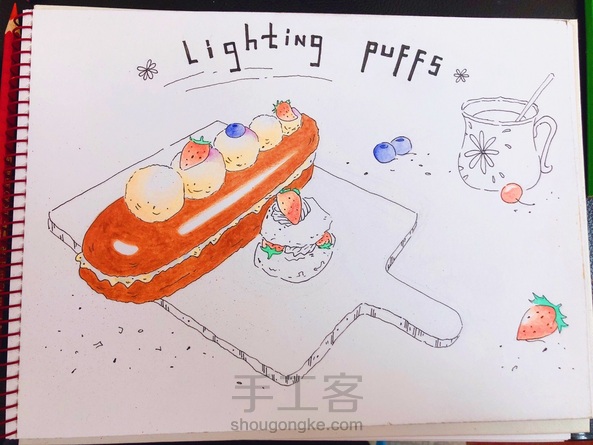 Lighting puffs
手工客
shougongke.com